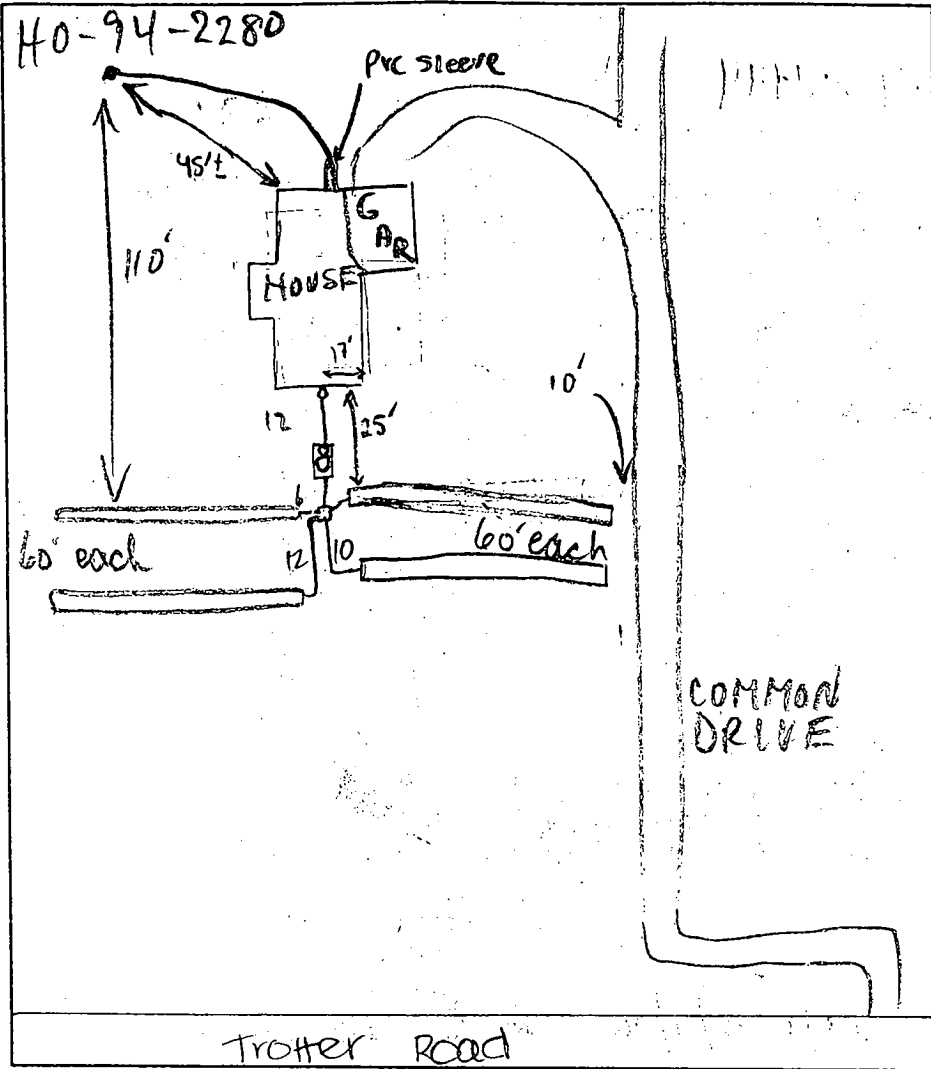 HO-94-2280
PVC sleeve
45'±
110'
GAR
HOUSE
17'
12
25'
10'
6
60' each
12
10
60' each
COMMON
DRIVE
Trotter Road